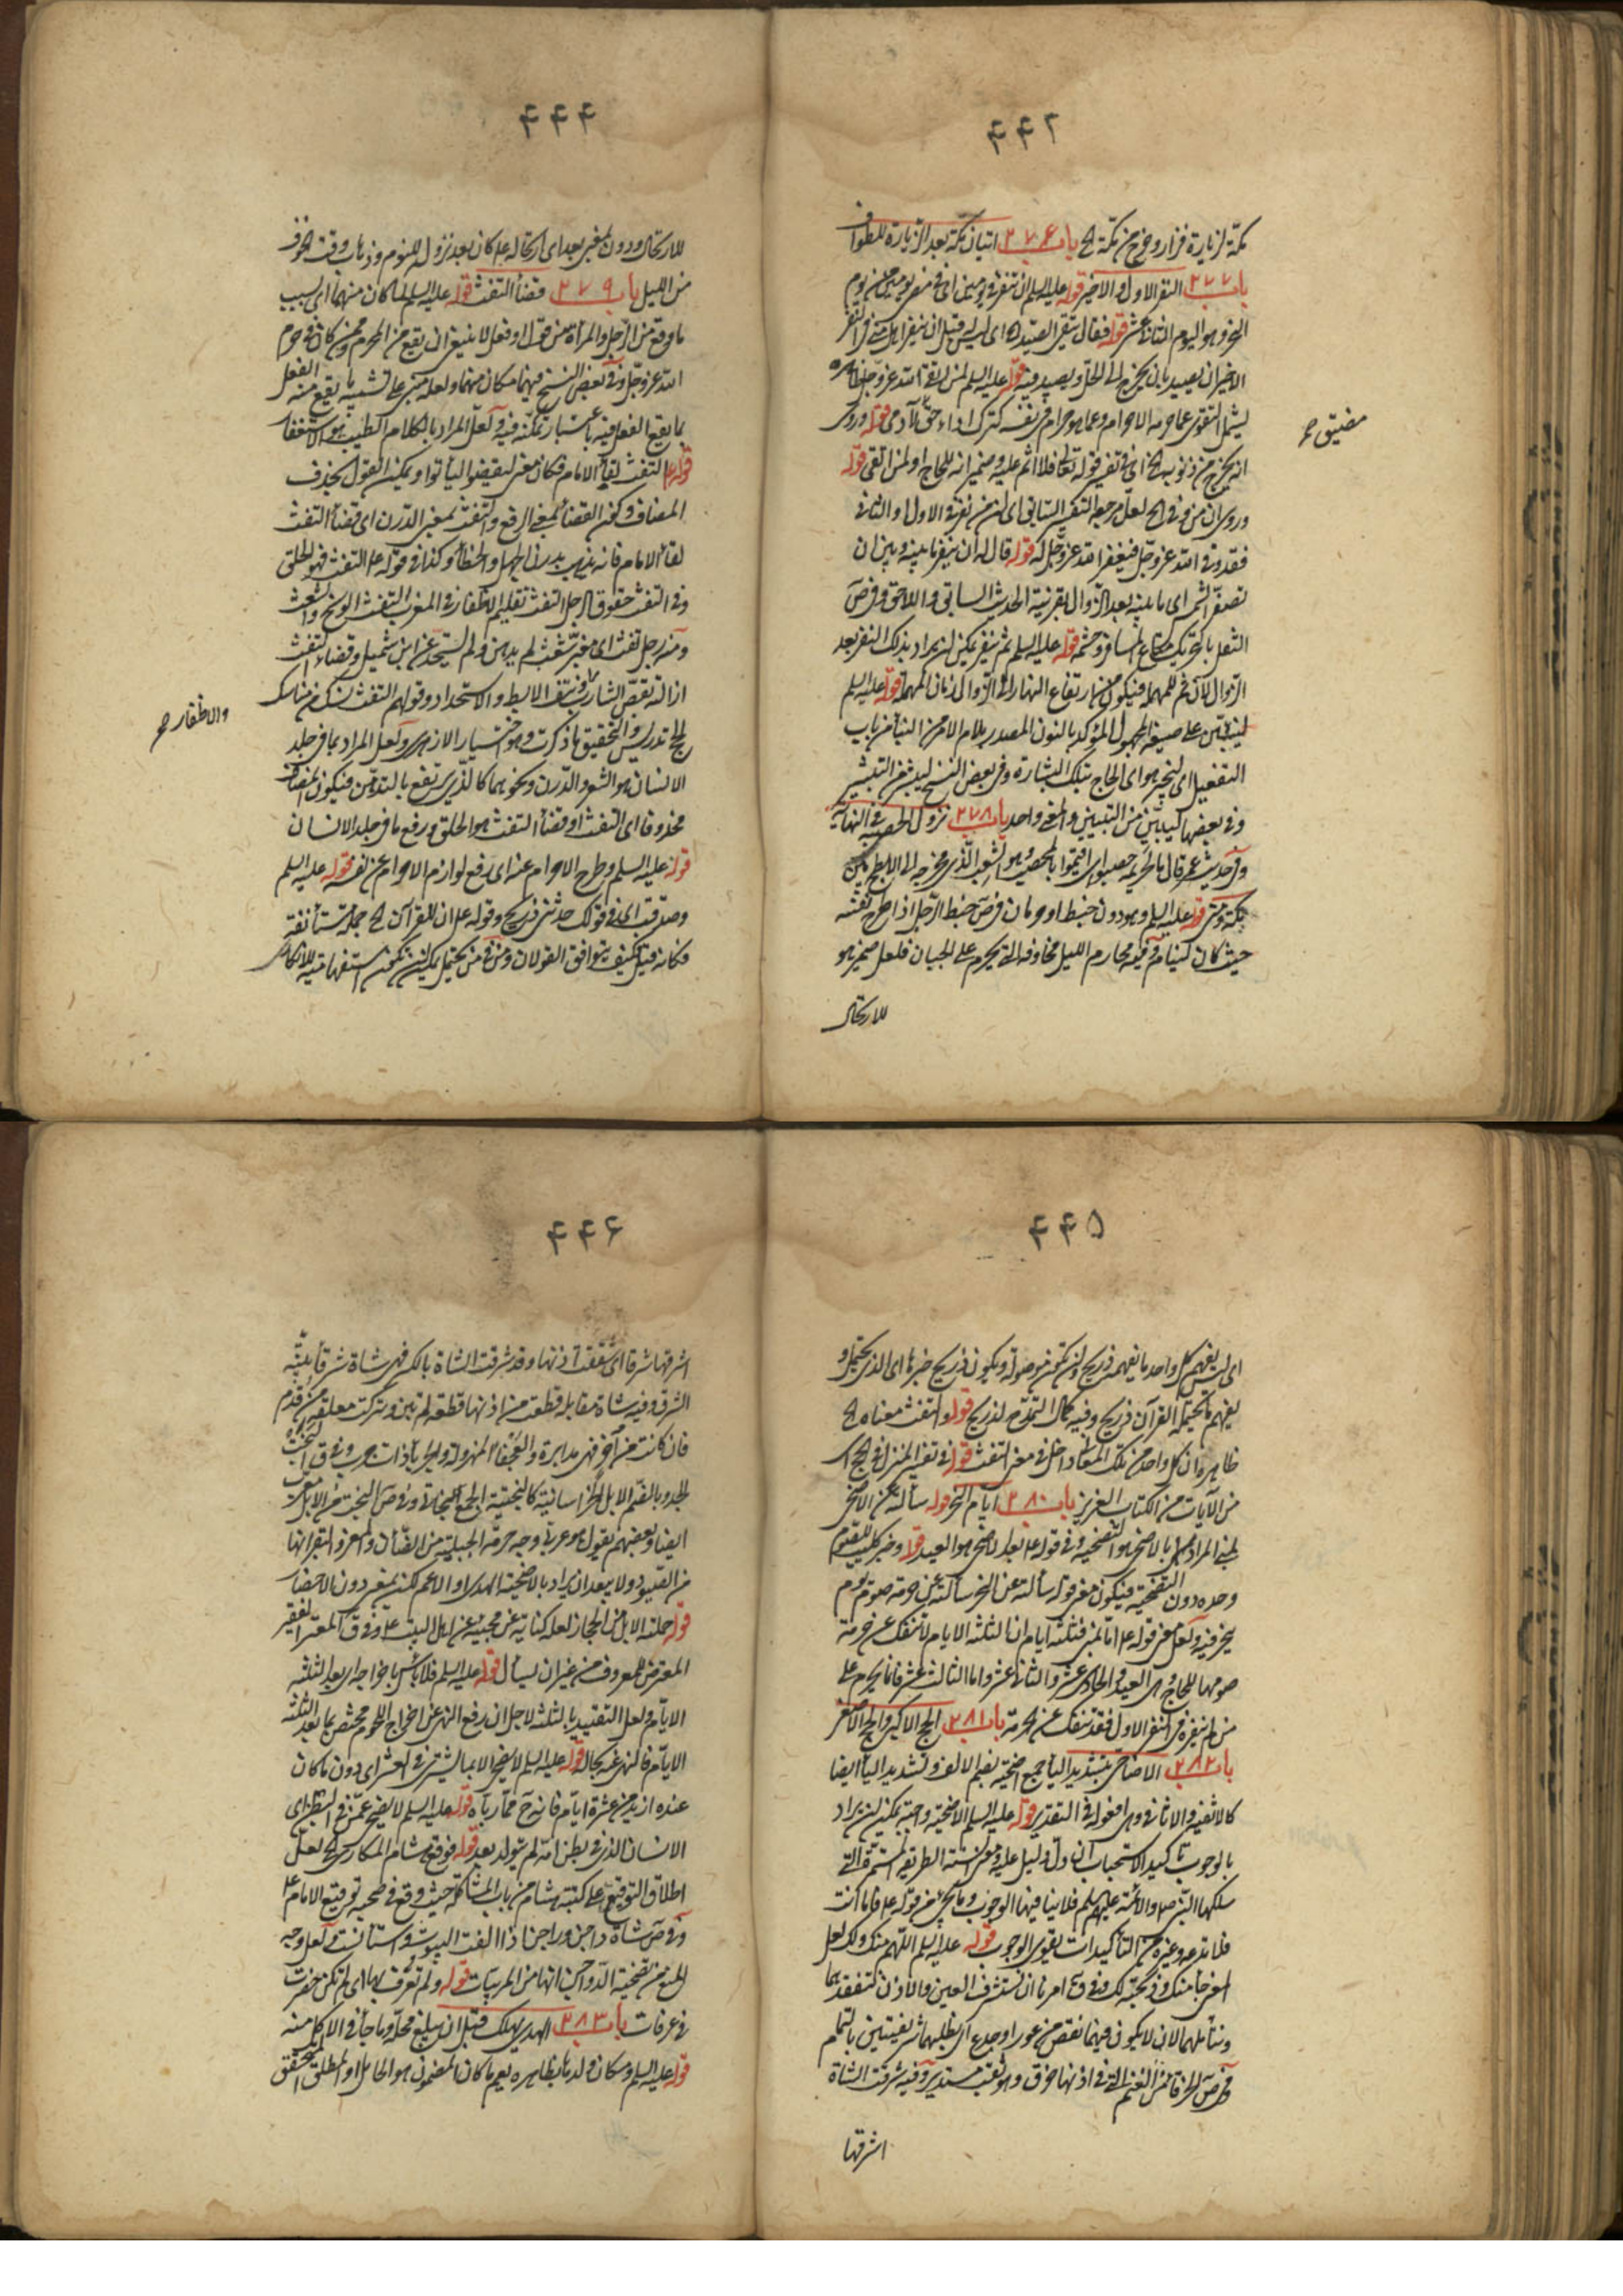 ۴۴۲
مكة لزيارة فزار وخرج من مكة الخ باب ۲۷۶ اتيان مكة بعد الزيارة للطواف
باب ۲۷۷ النفر الاول والاخير قوله عليه السلم ان تنفر في يومين اى في
النحر وهو اليوم الثانى عشر قوله فقال يتقى الصيد اى ليس له قبل ان ينفر اهل منى في النفر
الاخير ان يصيد بان يخرج الى الحل ويصيد فيه قوله عليه السلم لمن اتقى الله عز وجل
قوله وروى
مضيق ح
انه يخرج من ذنوبه الخ اى في تفسير قوله تعالى فلا اثم عليه قوله
وروى ان من وفى الخ لعل مرجعه التفسير السابق اى لمن نفر في الاول او الثانى
فقد وفى الله عز وجل فيغفر الله عز وجل له قوله قال له ان ينفر ما بينه وبين ان
تصفر الشمس اى ما بينه بعد الزوال بقرينة الحديث السابق واللاحق وفي ص
الثقل بالتحريك متاع المسافر وحشمه قوله عليه السلم ثم ينفر يمكن ان يراد بذلك النفر بعد
الزوال لان ثم للمهلة فيكون من ارتفاع النهار الى الزوال زمان المهلة قوله عليه السلم
على صيغة المجهول المؤكد بالنون المصدر بلام الامر من باب
التفعيل اى ليخبر هو اى الحاج بتلك البشارة وفي بعض النسخ من التبشير
وفي بعضها ليبين من التبيين والمعنى واحد باب ۲۷۸ نزول الحصبة في النهاية
وفي حديث عمر قال يا لخزيمة حصبوا اى اقيموا بالمحصب وهو الشعب الذى مخرجه الى الابطح بين
مكة ومنى قوله عليه السلم وهو دون خبط او حرمان في ص خبط الرجل اذا طرح نفسه
حيث كان لينام وفيه محارم الليل مخاوفه التى يحرم على الجبان فلعل ضمير هو
للارتحال
۴۴۴
للارتحال ودون بمعنى بعد اى ارتحاله كان بعد نزول للنوم وذهاب وقت الخوف
من الليل باب ۲۷۹ قضاء التفث قوله عليه السلم لما كان منهما اى بسبب
ما وقع من الرجل والمرأة من قول او فعل لا ينبغى ان يقع من المحرم وممن كان في حرم
الله عز وجل وفي بعض النسخ فيهما مكان منهما ولعله مبنى على تشبيه ما يقع منه الفعل
بما يقع الفعل فيه باعتبار تمكنه فيه ولعل المراد بالكلام الطيب هو الاستغفار
قوله التفث لقاء الامام فكان معنى ليقضوا ليأتوا ويمكن القول بحذف
المضاف وكون القضاء بمعنى الرفع والتفث بمعنى الدرن اى قضاء التفث
لقاء الامام فانه يذهب بدرن الجهل والخطأ وكذا في قوله التفث فهو الحلق
وفي التفث حقوق الرجل التفث تقليم الاظفار في المغرب التفث الوسخ والشعث
ومنه رجل تفث اى مغبر شعث لم يدهن ولم يستحد عن ابن شميل وقضاء التفث
ازالته بقص الشارب ونتف الابط والاستحداد وقولهم التفث نسك من مناسك
والاظفار ح
الحج تدريس والتحقيق ما ذكرت وهو اختيار الازهرى ولعل المراد بما في جلد
الانسان هو الشعر والدرن ونحوهما كالذى يرتفع بالتدهن فيكون المضاف
محذوفا اى التفث او قضاء التفث هو الحلق ورفع ما في جلد الانسان
قوله عليه السلم وطرح الاحرام عنه اى رفع لوازم الاحرام عن نفسه قوله عليه السلم
وصدقت اى في قولك حدثنى ذريح وقوله ان للقرآن الخ جملة مستأنفة
فكانه قيل كيف يتوافق القولان ومن في من يحتمل يمكن ان تكون استفهامية للانكار
۴۴۵
اى ليس يفهم كل واحد ما يفهمه ذريح وان تكون موصولة ويكون ذريح خبرها اى الذى يحتمل و
يفهم ما يحتمل القرآن ذريح وفيه كمال التمدح لذريح قوله والتفث معناه الخ
ظاهره ان كل واحد من تلك المعانى داخل في معنى التفث قوله في تفسير المنزل في الحج اى
من الآيات من الكتاب العزيز باب ۲۸۰ ايام النحر قوله سألته عن الاضحى
بمنى المراد بالاضحى هو التضحية وفي قوله بعد الاضحى هو العيد قوله وخبر كليب للصوم
وحده دون التضحية فيكون معنى قوله سألته عن النحر سألته عن حرمة صوم يوم
ينحر فيه ولعل معنى قوله اما بمنى فثلثة ايام ان الثلثة الايام لا تنفك عن حرمة
صومها للحاج وهى العيد والحادى عشر والثانى عشر واما الثالث عشر فانما يحرم على
من لم ينفر في النفر الاول فقد تنفك عن الحرمة باب ۲۸۱ الحج الاكبر والحج الاصغر
باب ۲۸۲ الاضاحى بتشديد الياء جمع اضحية بضم الالف وتشديد الياء ايضا
كالاثفية والاثافى وهى افعولة في التقدير قوله عليه السلم الاضحية واجبة يمكن ان يراد
بالوجوب تأكيد الاستحباب ان دل دليل عليه ومعنى السنة الطريقة المستمرة التى
سلكها النبى ص والائمة عليهم السلم فلا ينافيها الوجوب
فلا تدعه وغيره من التأكيدات يقوى الوجوب قوله عليه السلم اللهم منك ولك لعل
المعنى جاء منك وذبحته لك وفي امرنا ان نستشرف العين والاذن نتفقدهما
ونتأملهما لان لا يكون فيهما نقص من عور او جدع اى نطلبهما شريفتين بالتمام
وفي ص الخرقاء من الغنم التى في اذنها خرق وهو ثقب مستدير وفيه شرقت الشاة
اشرقها
۴۴۶
اشرقها شرقا اى شققت اذنها وقد شرقت الشاة بالكسر فهى شاة شرقاء بينة
الشرق وفيه شاة مقابلة قطعت من اذنها قطعة لم تبن وتركت معلقة من قدم
فان كانت من اخر فهى مدابرة والعجفاء المهزولة والجرباء ذات جرب وفي ق البخت
بالضم الابل الخراسانية كالبختية الجمع البخاتى وفي ص البخت من الابل معرب
ايضا وبعضهم يقول هو عربى وجه حرمة الجبلية من الضأن والمعز والبقر انها
من الصيود ولا يبعد ان يراد بالاضحية الهدى او الاعم لكن بمعنى دون الامصار
قوله حملته الابل من الحجاز لعله كناية عن مجيئه عن اهل البيت وفي ق المعتر الفقير
المعترض للمعروف من غير ان يسأل قوله عليه السلم فلا بأس باخراجه اى بعد الثلثة
الايام ولعل التقييد بالثلثة لاجل ان رفع النهى عن اخراج اللحوم مختص بما بعد الثلثة
الايام فالنهى عنه بحاله قوله عليه السلم لا يضحى الا بما يشترى في العشر اى دون ما كان
عنده ازيد من عشرة ايام فانه ح مما رباه قوله عليه السلم لا يضحى عمن في البطن اى
الانسان الذى في بطن امه لم يتولد بعد قوله فوقع هشام المكارى الخ لعل
اطلاق التوقيع على كتبة هشام من باب المشاكلة حيث وقع في صحبة توقيع الامام
وفي ص شاة داجن وراجن اذا الفت البيوت واستأنست ولعل وجه
المنع من تضحية الدواجن انها من المربيات قوله ولم تعرف بها اى لم تكن حضرت
في عرفات باب ۲۸۳ الهدى يهلك قبل ان يبلغ محله وما جاء في الاكل منه
قوله عليه السلم ومكان ولدها بظاهره يعم ما كان المضمون هو الحامل او المطلق